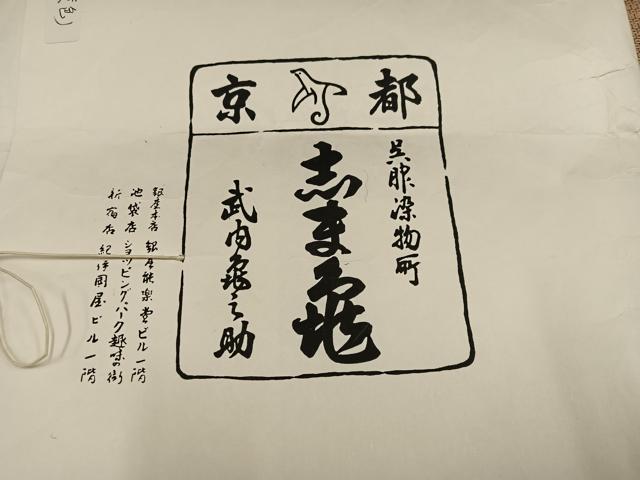 京都
呉服染物所
志ま亀
武内亀之助
銀座本店 銀座能楽堂ビル一階
池袋店 ショッピング・パーク趣味の街
新宿店 紀伊國屋ビル一階
色)